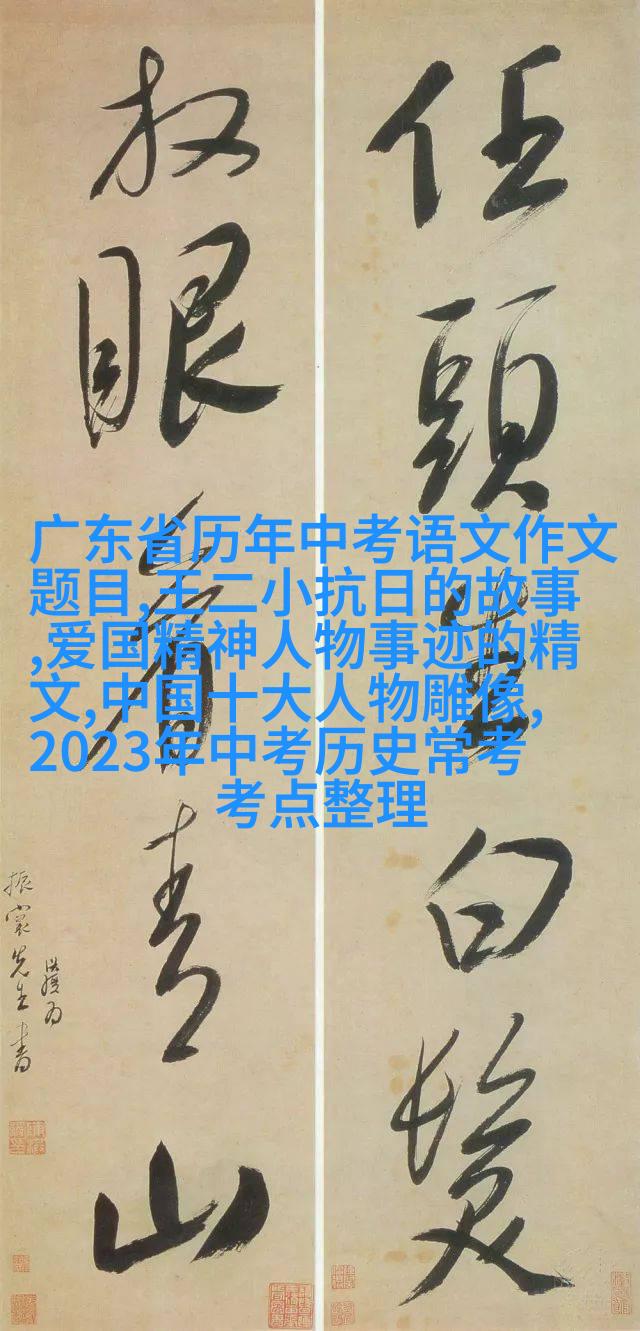 任頭生白髮
放眼看青山
振裳先生書
广东省历年中考语文作文
题目,王二小抗日的故事
,爱国精神人物事迹的精
文,中国十大人物雕像,
2023年中考历史常考
考点整理